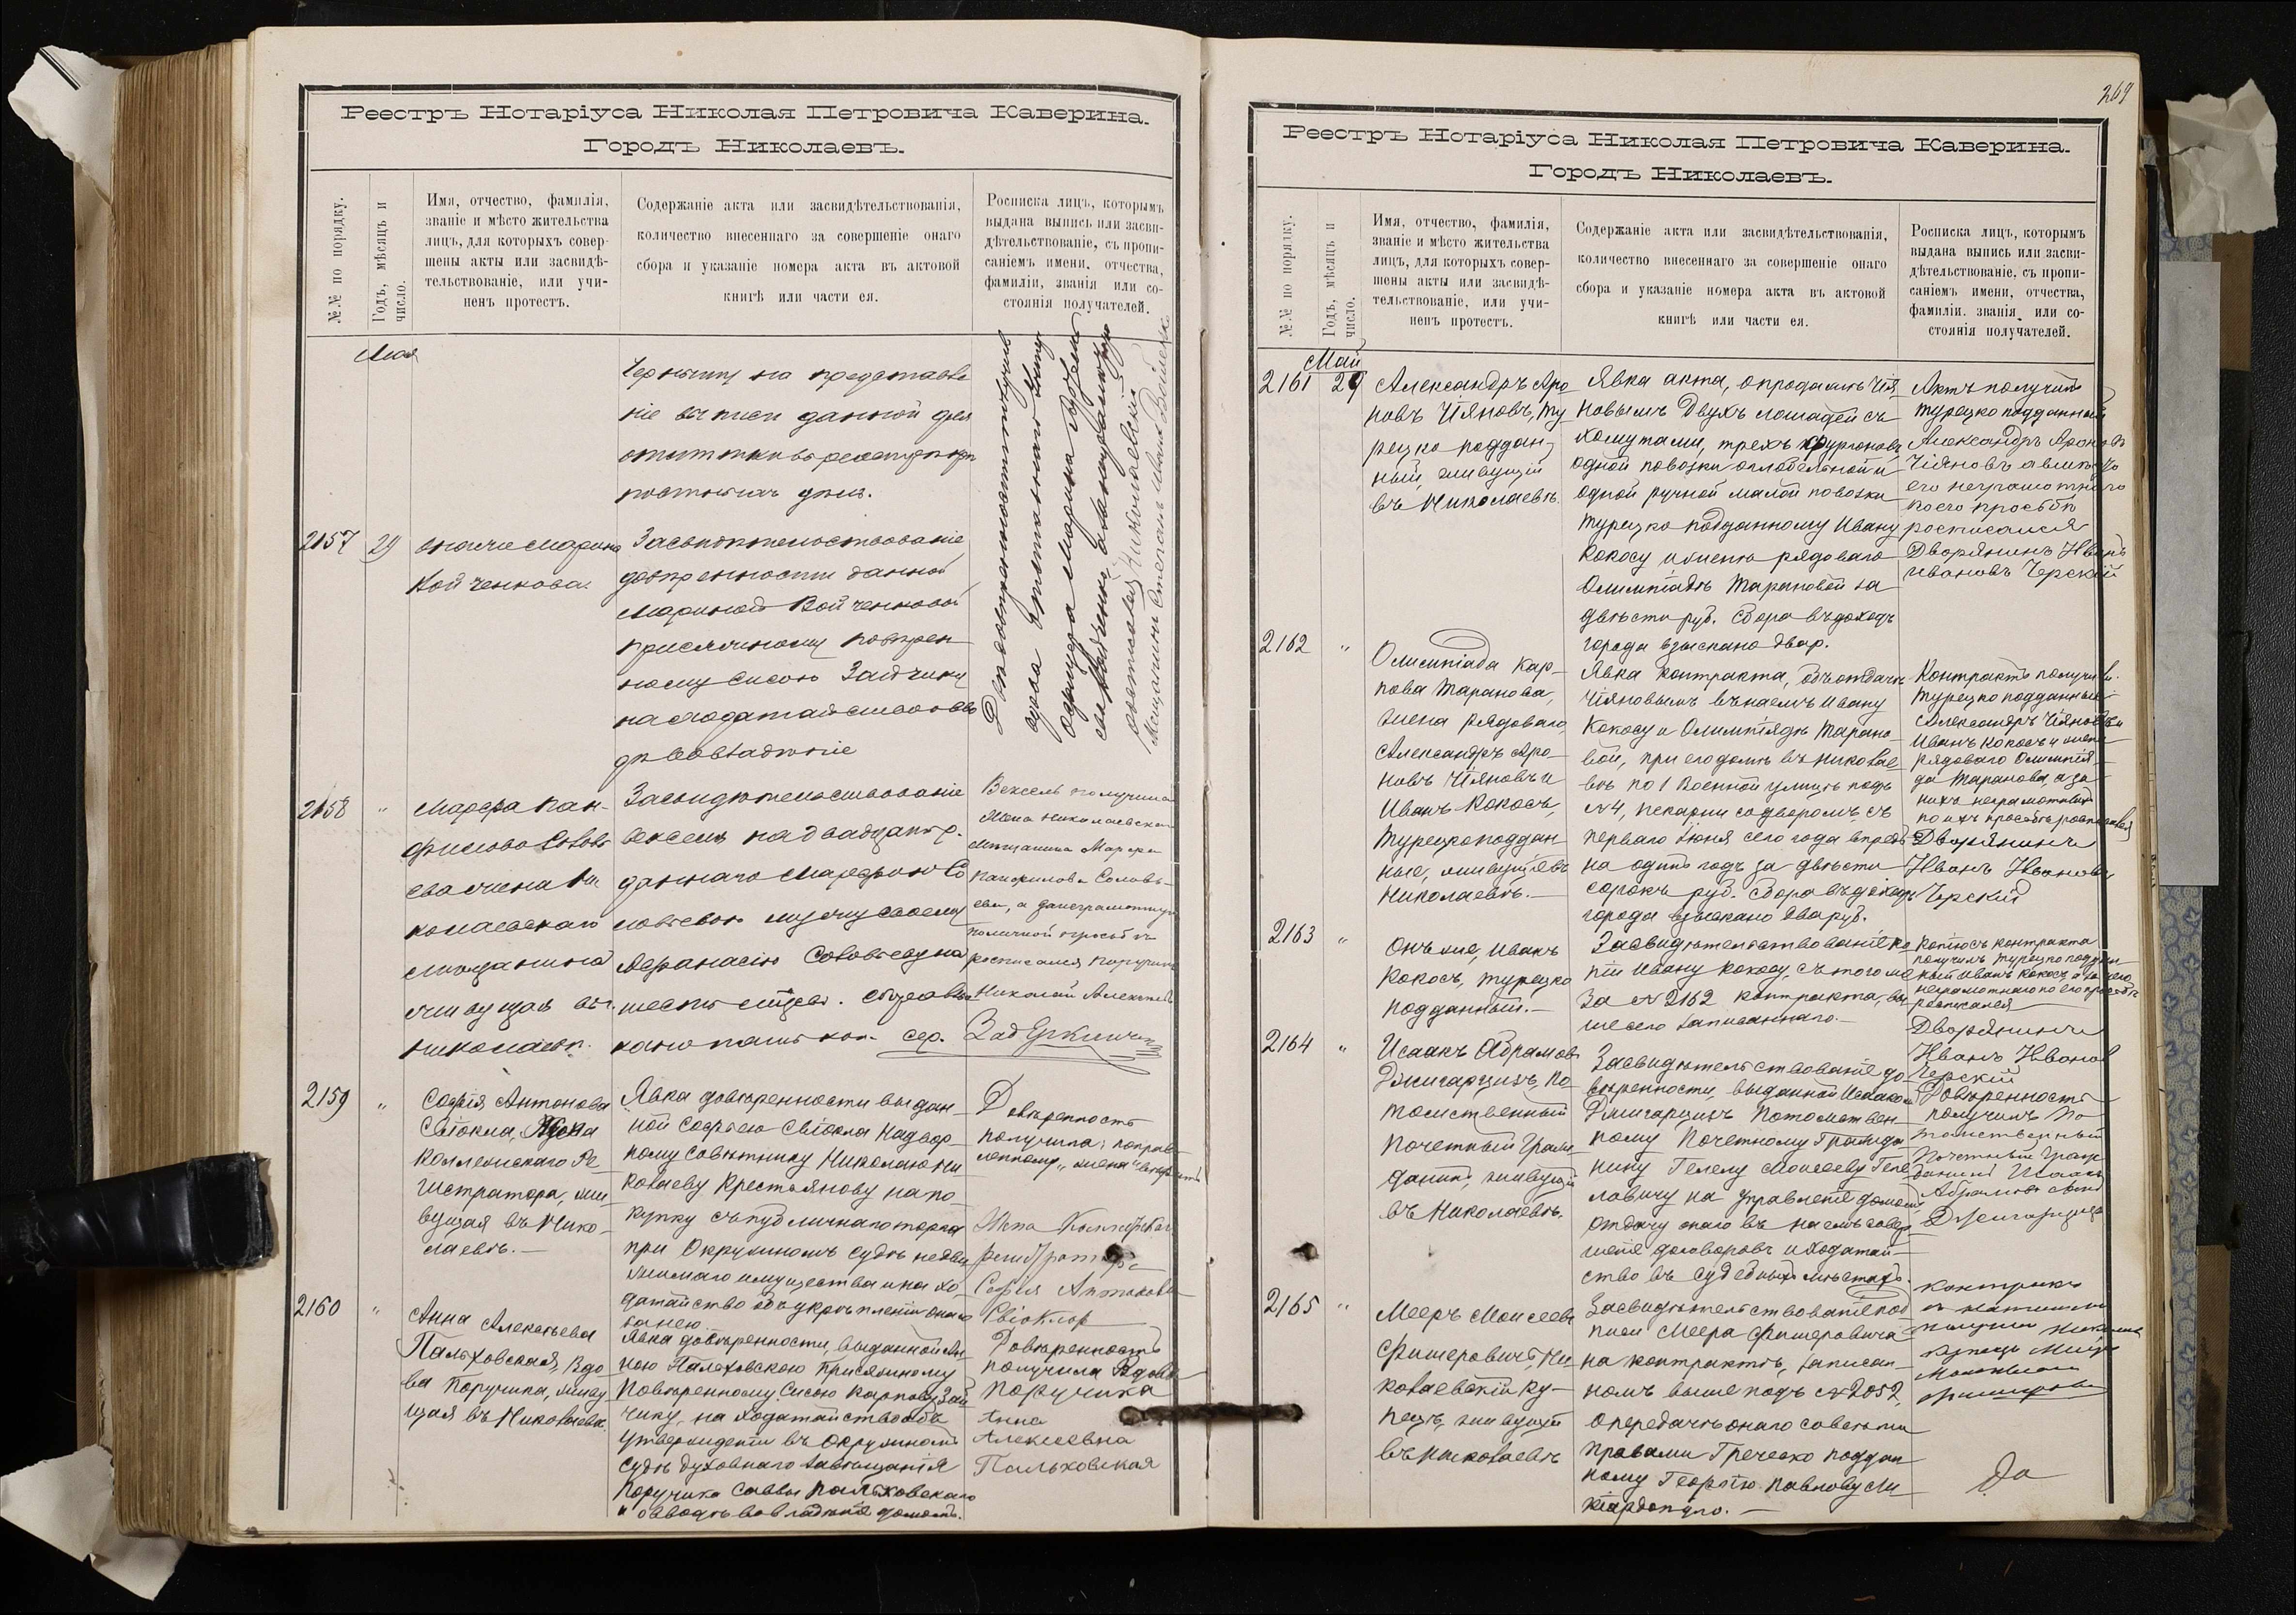 Реестръ Нотаріуса Николая Петровича Каверина.
Городъ Николаевъ.
№№ по порядку.
Годъ, мѣсяцъ и
число.
Имя, отчество, фамилія,
званіе и мѣсто жительства
лицъ, для которыхъ совер-
шены акты или засвидѣ-
тельствованіе, или учи-
ненъ протестъ.
Содержаніе акта или засвидѣтельствованія,
количество внесеннаго за совершеніе онаго
сбора и указаніе номера акта въ актовой
книгѣ или части ея.
Росписка лицъ, которымъ
выдана выпись или засви-
дѣтельствованіе, съ пропи-
саніемъ имени, отчества,
фамиліи, званія или со-
стоянія получателей.
на представле
ніе выписи данной для
2157
29
Марина
Войченкова
Засвидѣтельствованіе
довѣренности данной
Мариной Войченковой
присяжному повѣрен-
ному Сисою Зайчику
на ходатайство о вво
дѣ во владѣніе
2158
"
Марфа Пан-
филова Соловь
ева жена Ни
колаевскаго
мѣщанина
живущая въ
Николаевѣ.
Засвидѣтельствованіе
векселя на двадцать р.
даннаго Марфою Со
ловьевою мужу своему
Афанасію Соловьеву на
шесть мѣсяц.
сер.
Вексель получила
жена Николаевскаго
мѣщанина Марфа
Панфилова Соловь-
ева, а за неграмотную
по личной просьбѣ
росписался Поручикъ
Николай Алексѣевъ
2159
"
Софія Антонова
Свіокла, жена
Коллежскаго Ре-
гистратора, жи
вущая въ Нико-
лаевѣ.—
Явка довѣренности выдан-
ной Софьею Свіокла Надвор-
ному Совѣтнику Николаю Ни
колаеву Крестьянову на по
купку съ публичнаго торга
при Окружномъ судѣ недви
жимаго имущества и на хо
датайство объ укрѣпленіи онаго
за нею.
Довѣренность
получила, поправ-
ленному „жена" вѣрить
Жена Коллежскаго
регистратора
Софія Антонова
Свіокла
2160
"
Анна Алексѣева
Пальховская, вдо
ва Поручика, живу
щая въ Николаевѣ.
Явка довѣренности, выданной Ан-
ною Пальховскою Присяжному
Повѣренному Сисою Карпову Зай
чику, на ходатайство объ
утвержденіи въ Окружномъ
Судѣ духовнаго завѣщанія
Поручика Саввы Пальховскаго
и о вводѣ во владѣніе домомъ.
Довѣренность
получила Вдова
Поручика
Анна
Алексеевна
Пальховская
269
Реестръ Нотаріуса Николая Петровича Каверина.
Городъ Николаевъ.
№№ по порядку.
Годъ, мѣсяцъ и
число.
Имя, отчество, фамилія,
званіе и мѣсто жительства
лицъ, для которыхъ совер-
шены акты или засвидѣ-
тельствованіе, или учи-
ненъ протестъ.
Содержаніе акта или засвидѣтельствованія,
количество внесеннаго за совершеніе онаго
сбора и указаніе номера акта въ актовой
книгѣ или части ея.
Росписка лицъ, которымъ
выдана выпись или засви-
дѣтельствованіе, съ пропи-
саніемъ имени, отчества,
фамиліи, званія или со-
стоянія получателей.
Май
2161
29
Александръ Аро
новъ Чіяновъ, ту
рецко поддан-
ный, живущій
въ Николаевѣ.
Явка акта, о продажѣ Чія-
новымъ двухъ лошадей съ
хомутами, трехъ фургоновъ
одной повозки оглобельной и
одной ручной малой повозки
турецко подданному Ивану
Кокосу и женѣ рядоваго
Олимпіадѣ Тарановой за
двѣсти руб. Сбора въ доходъ
города взыскано два р.
Актъ получилъ
турецко подданный
Александръ Ароновъ
Чіяновъ а вмѣсто
его неграмотнаго
по его просьбѣ
росписался
Дворянинъ Иванъ
Ивановъ Черскій
2162
"
Олимпіада Кар-
пова Таранова,
жена рядоваго,
Александръ Аро-
новъ Чіяновъ и
Иванъ Кокосъ,
турецкоподдан
ные, живущіе въ
Николаевѣ.—
Явка контракта, объ отдачѣ
Чіяновымъ въ наемъ Ивану
Кокосу и Олимпіадѣ Тарано-
вой, при его домѣ въ Николае-
вѣ по 1 Военной улицѣ подъ
№4, пекарни со дворомъ съ
перваго Іюня сего года впредь
на одинъ годъ за двѣсти
сорокъ руб. Сбора въ доходъ
города взыскано два руб.
Контрактъ получили
турецко подданные
Александръ Чіяновъ и
Иванъ Кокосъ и жена
рядоваго Олимпія-
да Таранова, а за
нихъ неграмотныхъ
по ихъ просьбѣ росписался
Дворянинъ
Иванъ Ивановъ
Черскій
2163
"
Онъ же, Иванъ
Кокосъ, турецко
подданный.—
Засвидѣтельствованіе ко
піи Ивану Кокосу, съ того же
за №2162 контракта, вы
ше сего записаннаго.—
Копію съ контракта
получилъ турецко поддан-
ный Иванъ Кокосъ а за него
неграмотнаго по его просьбѣ
росписался
Дворянинъ
Иванъ Ивановъ
Черскій
2164
"
Исаакъ Абрамовъ
Джигарцихъ, По-
томственный
Почетный Граж-
данинъ, живущій
въ Николаевѣ.
Засвидѣтельствованіе до-
вѣренности, выданной Исаакомъ
Джигарцихъ Потомствен-
ному Почетному Гражда
нину Гелелу Моисееву Геле
ловичу на управленіе домомъ
отдачу онаго въ наемъ совер
шеніе договоровъ и ходатай-
ство въ судебныхъ мѣстахъ.
Довѣренность
получилъ По
томственный
Почетный Граж
данинъ Исаакъ
2165
"
Мееръ Моисеевъ
Фишеровичъ, Ни
колаевскій ку-
пецъ, живущій
въ Николаевѣ
Засвидѣтельствованіе под
писи Меера Фишеровича
на контрактѣ, записан-
номъ выше подъ №2052,
о передачѣ онаго со всѣми
правами Греческо поддан
ному Георгію Павлову
Контрактъ
получилъ